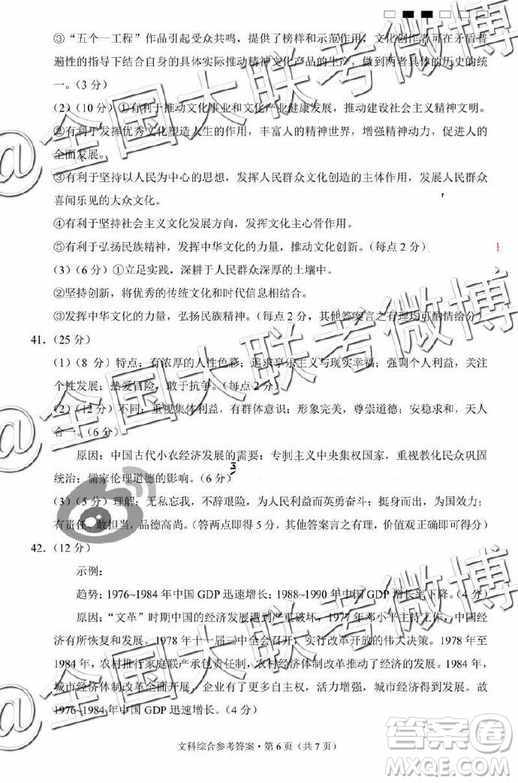 ③“五个一工程”作品引起受众共鸣，提供了榜样示范作用，
遍性的指导下结合自身的具体实际推动精神文化产品的生产，做到两者具体的历史的统
一。（3 分）
（2）（10 分）①有利于推动文化事业和文化产业健康发展，建设社会主义精神文明。
②有利于发挥优秀文化塑造人生的作用，丰富人的精神世界，增强精神力量，促进人的
全面发展。
③有利于坚持以人民为中心的思想，发挥人民群众文化创造的主体作用，发展人民群众
喜闻乐见的大众文化。
④有利于坚持社会主义文化发展方向，发挥文化主心骨作用。
⑤有利于弘扬民族精神，发挥中华文化的力量，推动文化创新。（每点 2 分）
（3）（6 分）①立足实践，深耕于人民群众深厚的土壤中。
②坚持创新，将优秀的传统文化与时代精神相结合。
③发挥中华文化的力量，弘扬民族精神。（每点 2 分，其他答案言之有理均可酌情给分）
41.（25 分）
（1）（8 分）特点：有浓厚的人性色彩；追求享乐主义与现实幸福；强调个人利益，关注
个性发展；热爱冒险，敢于抗争。（2 分）
（2）（12 分）不同：重视集体利益，以群体意识为主；形象完美，尊崇道德；安稳求和，天人
合一。（6 分）
原因：中国古代小农经济发展的需要；专制主义中央集权国家，重视教化民众巩固
统治；儒家伦理道德的影响。（6 分）
（3）（5 分）理解：无私忘我，不辞艰险，为人民利益而英勇奋斗；挺身而出，有效力；有
责任、敢担当，品德高尚。（答两点即得 5 分，其他答案言之有理，价值观正确即可得分）
42.（12 分）
示例：
趋势：1976-1984 年中国 GDP 迅速增长；1988-1990 年中国 GDP 增长率下降。（4 分）
原因：“文革”时期中国的经济发展遭到严重破坏，1977 年邓小平主持工作，经
济有所恢复和发展。1978 年十一届三中全会召开，实行改革开放的伟大决策。1978 年至
1984 年，农村推行家庭联产承包责任制，农村经济体制改革推动了经济的发展。1984 年，
城市经济体制改革全面展开，大大解放和发展了生产力，促进了经济的迅速增长。故
1976-1984 年中国 GDP 迅速增长。（4 分）
文科综合参考答案·第 6 页（共 7 页）
@全国大联考微博
@全国大联考微博
答案圈
MXQE.COM